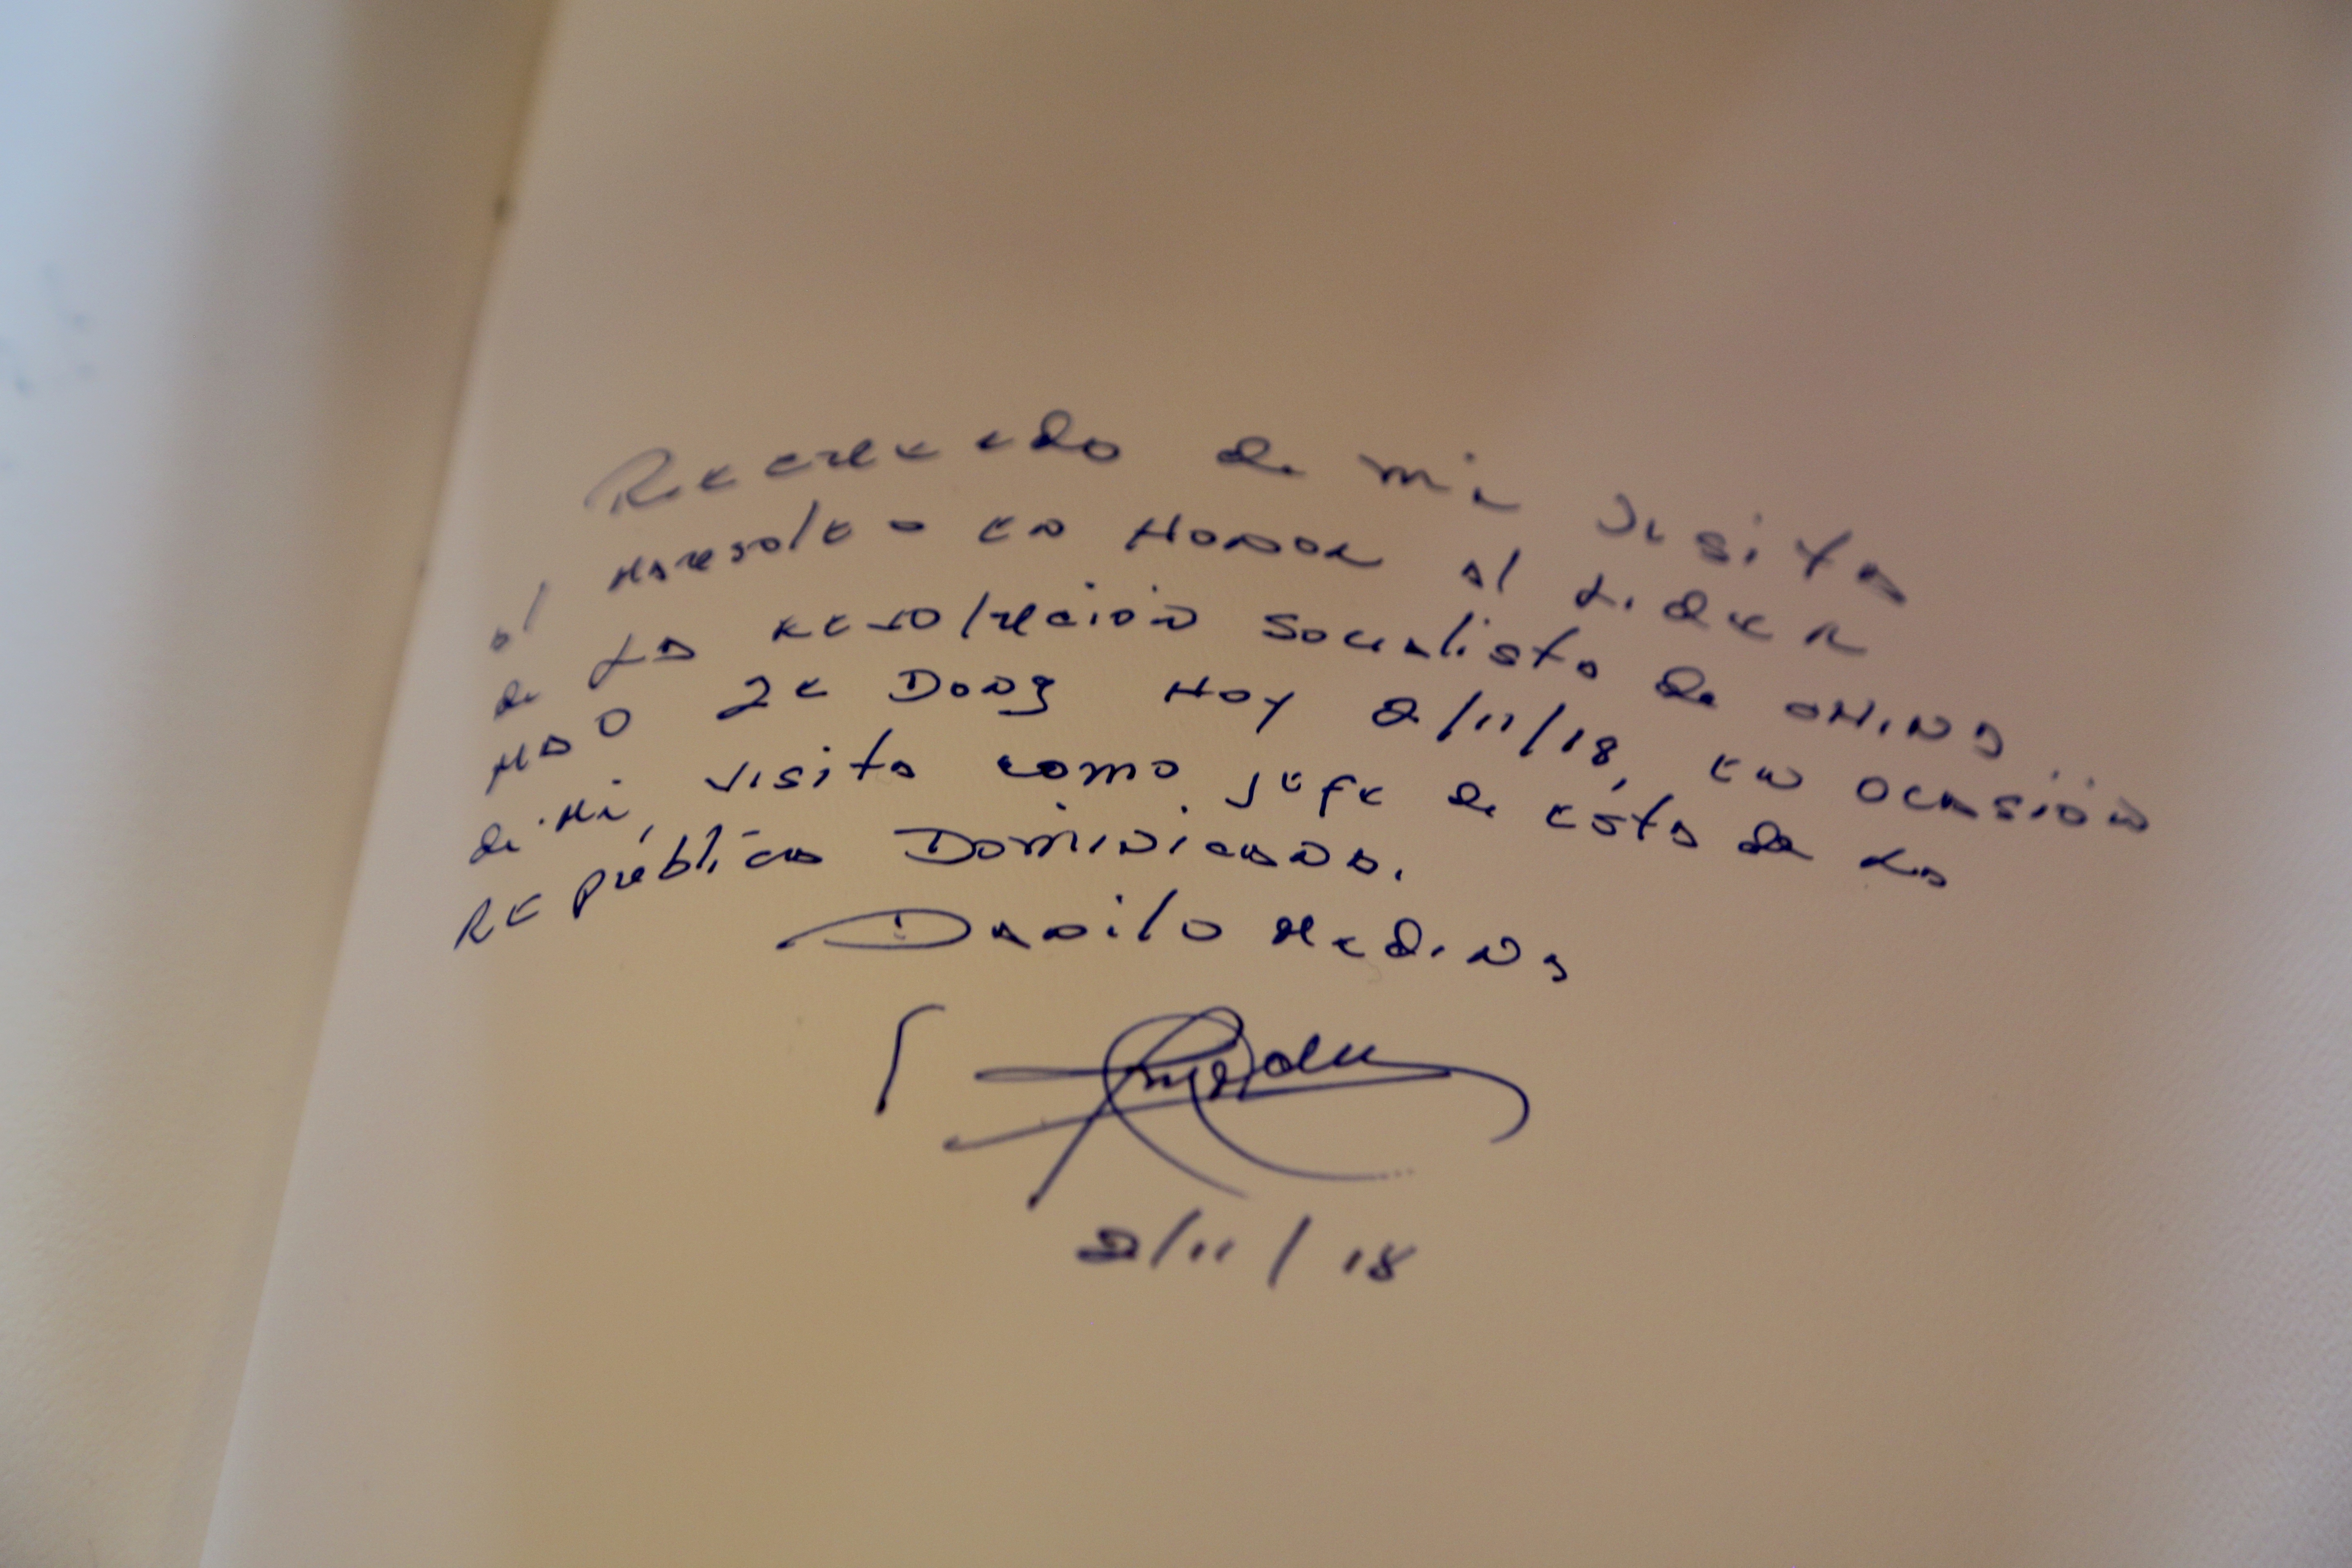 Recuerdo de mi visita
al Mausoleo en Honor al Lider
de La Revolución Socialista de CHINA
MAO ZE DONG HOY 2/11/18, EN OCASIÓN
de mi, visita como jefe de ésta de La
República Dominicana.
Danilo Medina
2/11/18